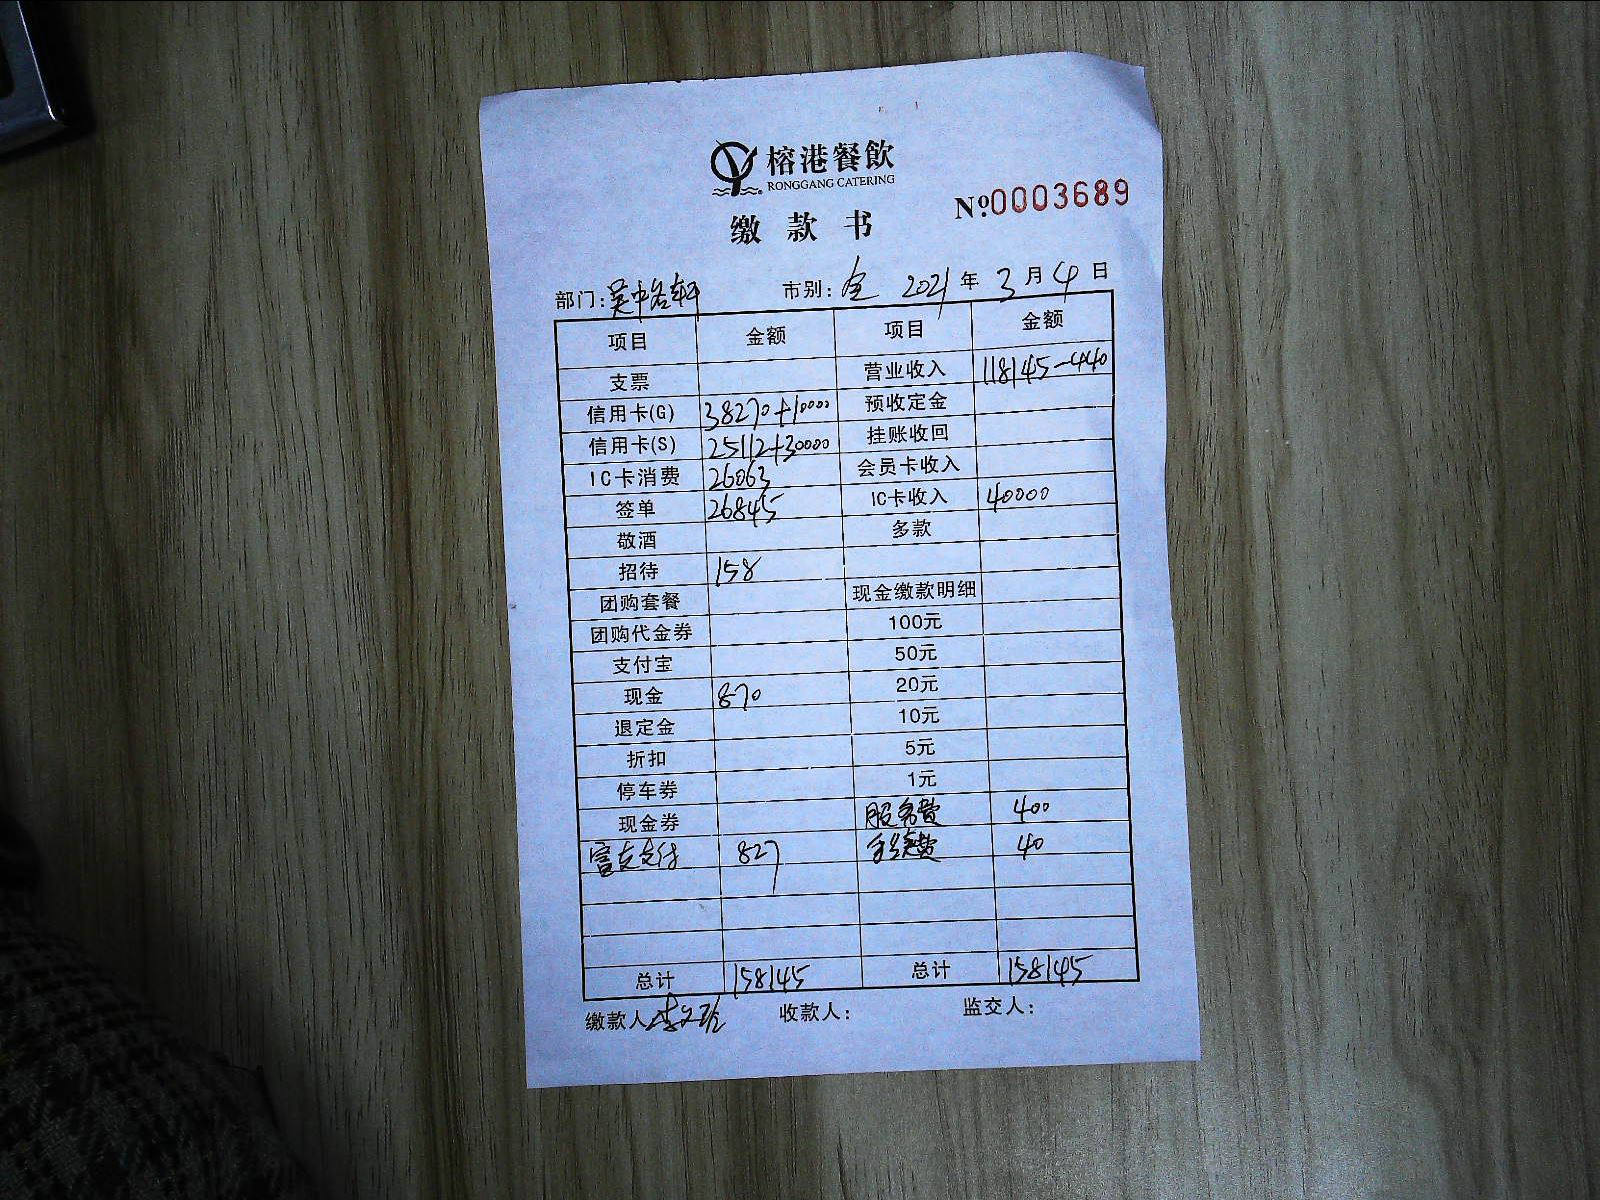 榕港餐飲
RONGGANG CATERING
缴款书
№0003689
部门:吴中名轩 市别:全 2021年3月4日
项目 金额 项目 金额
支票 营业收入 118145-440
信用卡(G) 38270+10000 预收定金
信用卡(S) 25112+30000 挂账收回
IC卡消费 26063 会员卡收入
签单 26845 IC卡收入 40000
敬酒 多款
招待 158
团购套餐 现金缴款明细
团购代金券 100元
支付宝 50元
现金 870 20元
退定金 10元
折扣 5元
停车券 1元
现金券 服务费 400
富友支付 827 手续费 40
总计 158145 总计 158145
缴款人 收款人: 监交人: